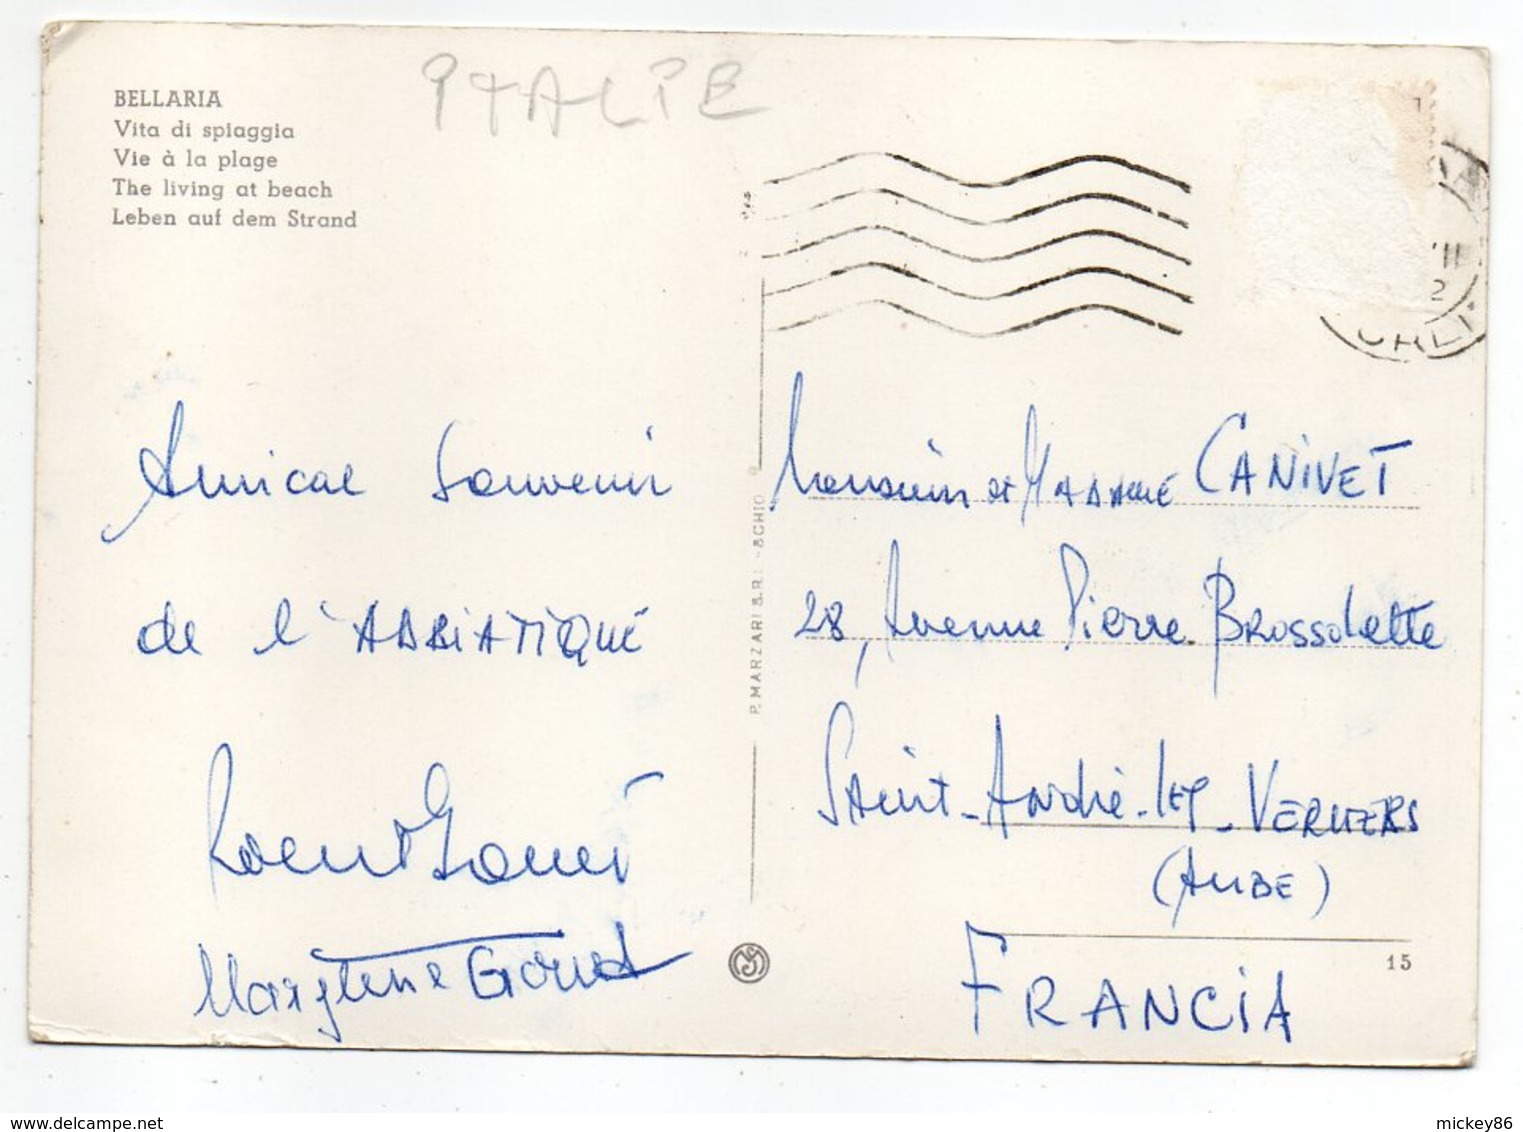 BELLARIA
Vita di spiaggia
Vie à la plage
The living at beach
Leben auf dem Strand
ITALIE
Amical Souvenir
de l'ADRIATIQUE
Marylène Gonet
P. MARZARI S.R.L. - SCHIO
Monsieur et MADAME CANIVET
28, Avenue Pierre BROSSOLETTE
SAINT-André-les-VERGERS
(AUBE)
FRANCIA
15
delcampe.net
mickey86